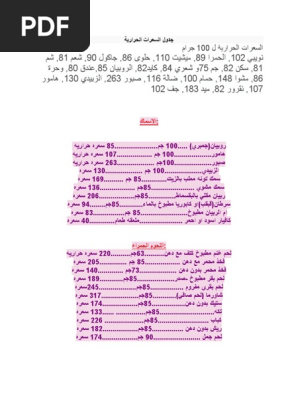 PDF
جدول السعرات الحرارية
السعرات الحرارية ل 100 جرام
نويبي 102, الحمرا 89, ميشيت 110, حلوى 86, جاكول 90, شعم 81, شم
81, سكن 82, جم 75و شعري 84, كنيد82, الروبيان 85,عندق 80, وحرة
86, مشوا 148, حمام 100, ضالة 116, صبور 263, الزبيدي 130, هامور
107, نقرور 82, سيد 183, جف 102
الأسماك:
روبيان(جمبري) .....100 جم....................85 سعره حراريه
هامور..............100 جم ....................107 سعره
صبور..............100جم.....................263 سعره حراريه
الزبيدي...............100 جم .................130 سعره
سمك تونه معلب بالزيت........85 جم .........169 سعره
سمك مشوي ....................85جم............136 سعره
روبيان مقلي بالبقسماط........85جم...........206 سعره
سرطان(قبقب)او كابوريا مطبوخ بالماء........85جم......94 سعره
ام الربيان مطبوخ...............85 جم ..............83 سعره
كافيار اسود او احمر ............ملعقه طعام..........40 سعره
اللحوم الحمراء:
لحم غنم مطبوخ كتف مع دهن........63جم......220 سعره حراريه
فخذ محمر مع دهن ................85 جم............205 سعره
فخذ محمر بدون دهن ..............73جم.............140 سعره
لحم بقر مطبوخ ..صدر............85جم.............189 سعره
لحم بقري مفروم .................85جم............245سعره
شاورما (لحم صافي).............85جم...........317 سعره
ستيك بدون دهن..................85جم............174 سعره
كلاوي..........................85جم............133 سعره
كباب ..........................85جم............ 226 سعره
ريش بدون دهن .................85جم............182 سعره
لحم جمل......................90 جم............174 سعره